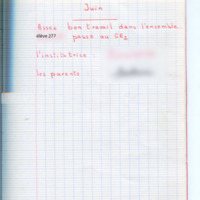 Juin
Assez bon travail dans l'ensemble
élève 277 passe au CE2
l'institutrice :
les parents